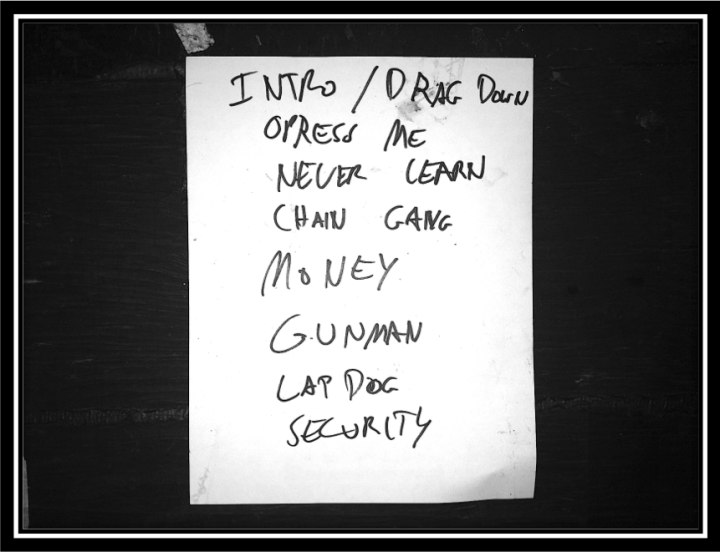 INTRO / DRAG DOWN
OPRESS ME
NEVER LEARN
CHAIN GANG
MONEY
GUNMAN
LAP DOG
SECURITY